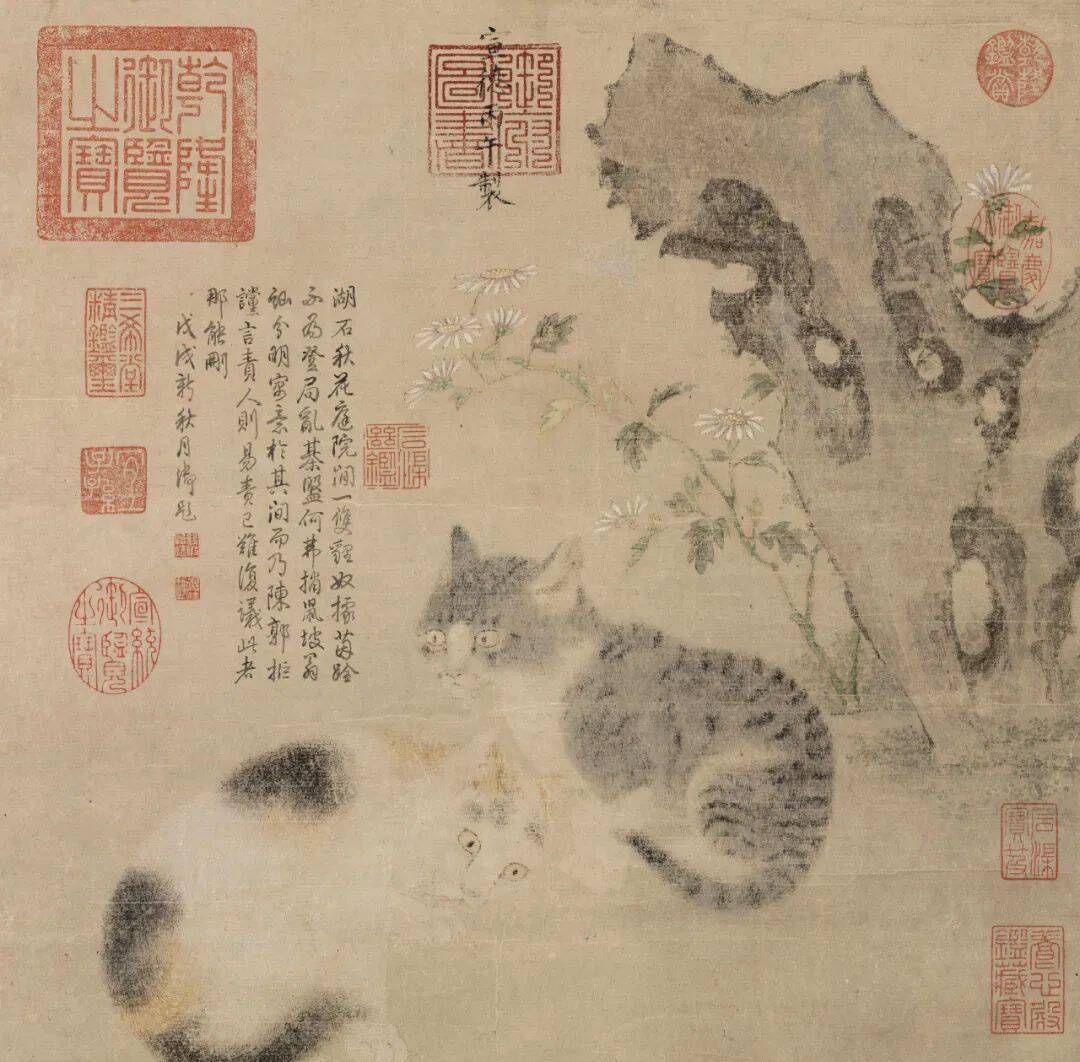 宣德丙午製
湖石秋花庭院間一雙貍奴據茵跧
不為登局亂棊盤何弗捎鼠坡翁
訕分明寓意於其間而乃陳郭拒
讜言責人則易責己難復議此者
那能刪
戊戌新秋月御題
乾隆御覽之寶
乾隆鑑賞
嘉慶御覽之寶
三希堂精鑑璽
宜子孫
宣統御覽之寶
石渠定鑑
石渠寶笈
養心殿鑑藏寶